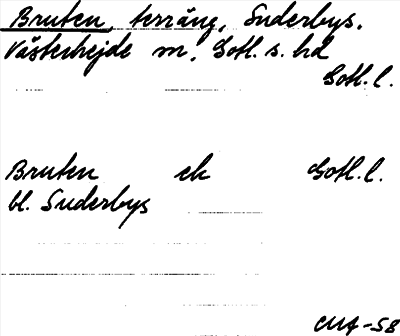 Bruten, terräng, Suderbys,
Västerhejde sn, Gotl. s. hd
Gotl. l.
Bruten ek Gotl. l.
bl. Suderbys
CMA-58